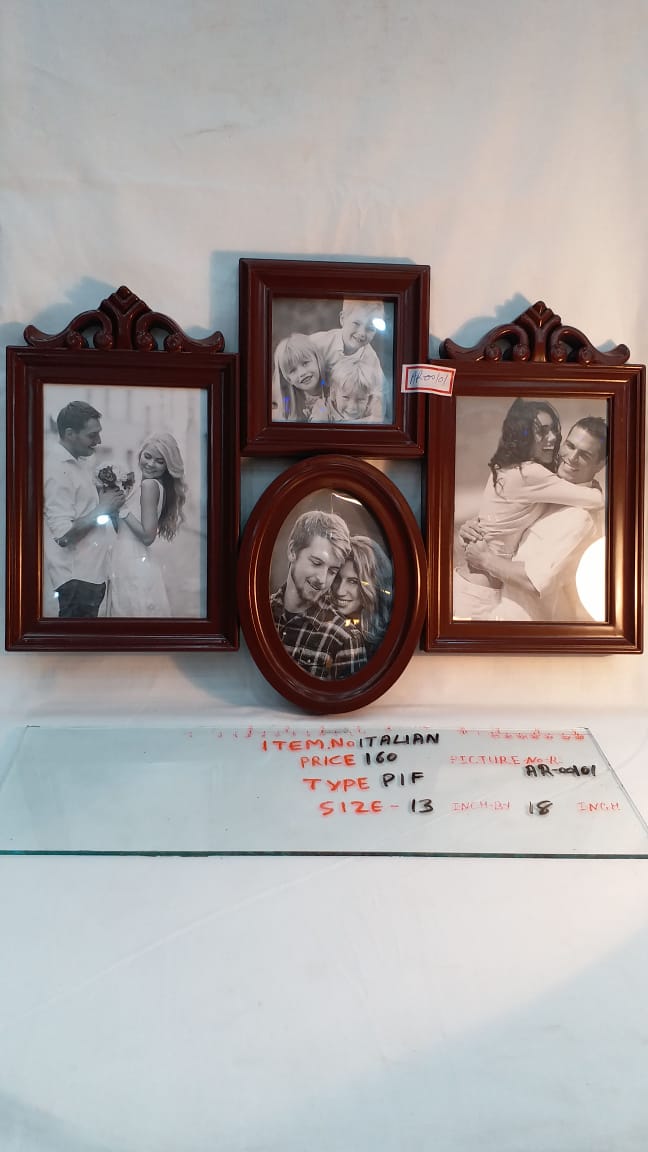 AR-00101
ITEM.No ITALIAN
PRICE 160 PICTURE No-R
AR-00101
TYPE PIF
SIZE - 13 INCH-BY 18 INCH